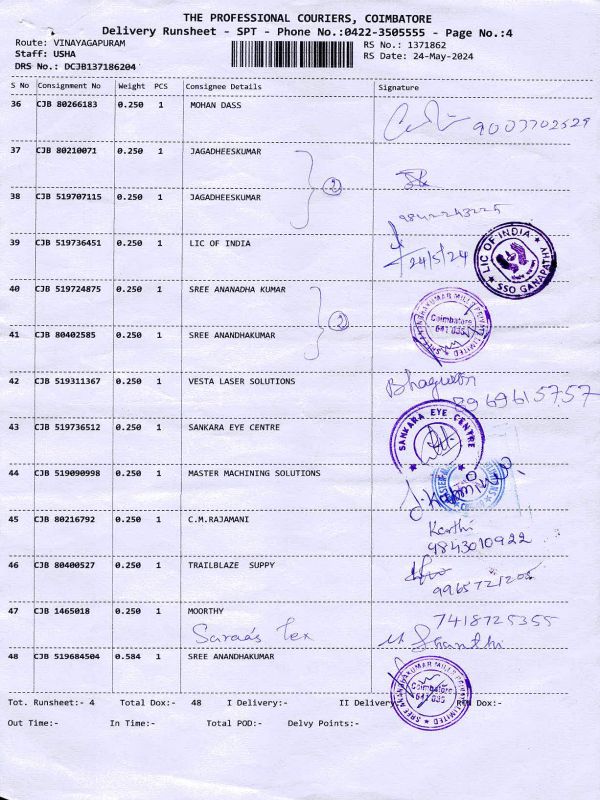 THE PROFESSIONAL COURIERS, COIMBATORE
Delivery Runsheet - SPT - Phone No.:0422-3505555 - Page No.:4
Route: VINAYAGAPURAM
Staff: USHA
DRS No.: DCJB137186204
RS No.: 1371862
RS Date: 24-May-2024
S No Consignment No Weight PCS Consignee Details Signature
36 CJB 80266183 0.250 1 MOHAN DASS
9003702529
37 CJB 80210071 0.250 1 JAGADHEESKUMAR
2
38 CJB 519707115 0.250 1 JAGADHEESKUMAR
9842243225
39 CJB 519736451 0.250 1 LIC OF INDIA
24/5/24
LIC OF INDIA
SSO GANAPATHY
40 CJB 519724875 0.250 1 SREE ANANADHA KUMAR
2
41 CJB 80402585 0.250 1 SREE ANANDHAKUMAR
SREE ANANDHAKUMAR MILLS PRIVATE LIMITED
Coimbatore
641 035
42 CJB 519311367 0.250 1 VESTA LASER SOLUTIONS
8969615757
43 CJB 519736512 0.250 1 SANKARA EYE CENTRE
SANKARA EYE CENTRE
44 CJB 519090998 0.250 1 MASTER MACHINING SOLUTIONS
45 CJB 80216792 0.250 1 C.M.RAJAMANI
Karthi
9843010922
46 CJB 80400527 0.250 1 TRAILBLAZE SUPPY
9965721205
47 CJB 1465018 0.250 1 MOORTHY
7418725355
Saraas Tex
M Shanthi
48 CJB 519684504 0.584 1 SREE ANANDHAKUMAR
SREE ANANDHAKUMAR MILLS PRIVATE LIMITED
Coimbatore
641 035
Tot. Runsheet:- 4 Total Dox:- 48 I Delivery:- II Delivery:- Dox:-
Out Time:- In Time:- Total POD:- Delvy Points:-